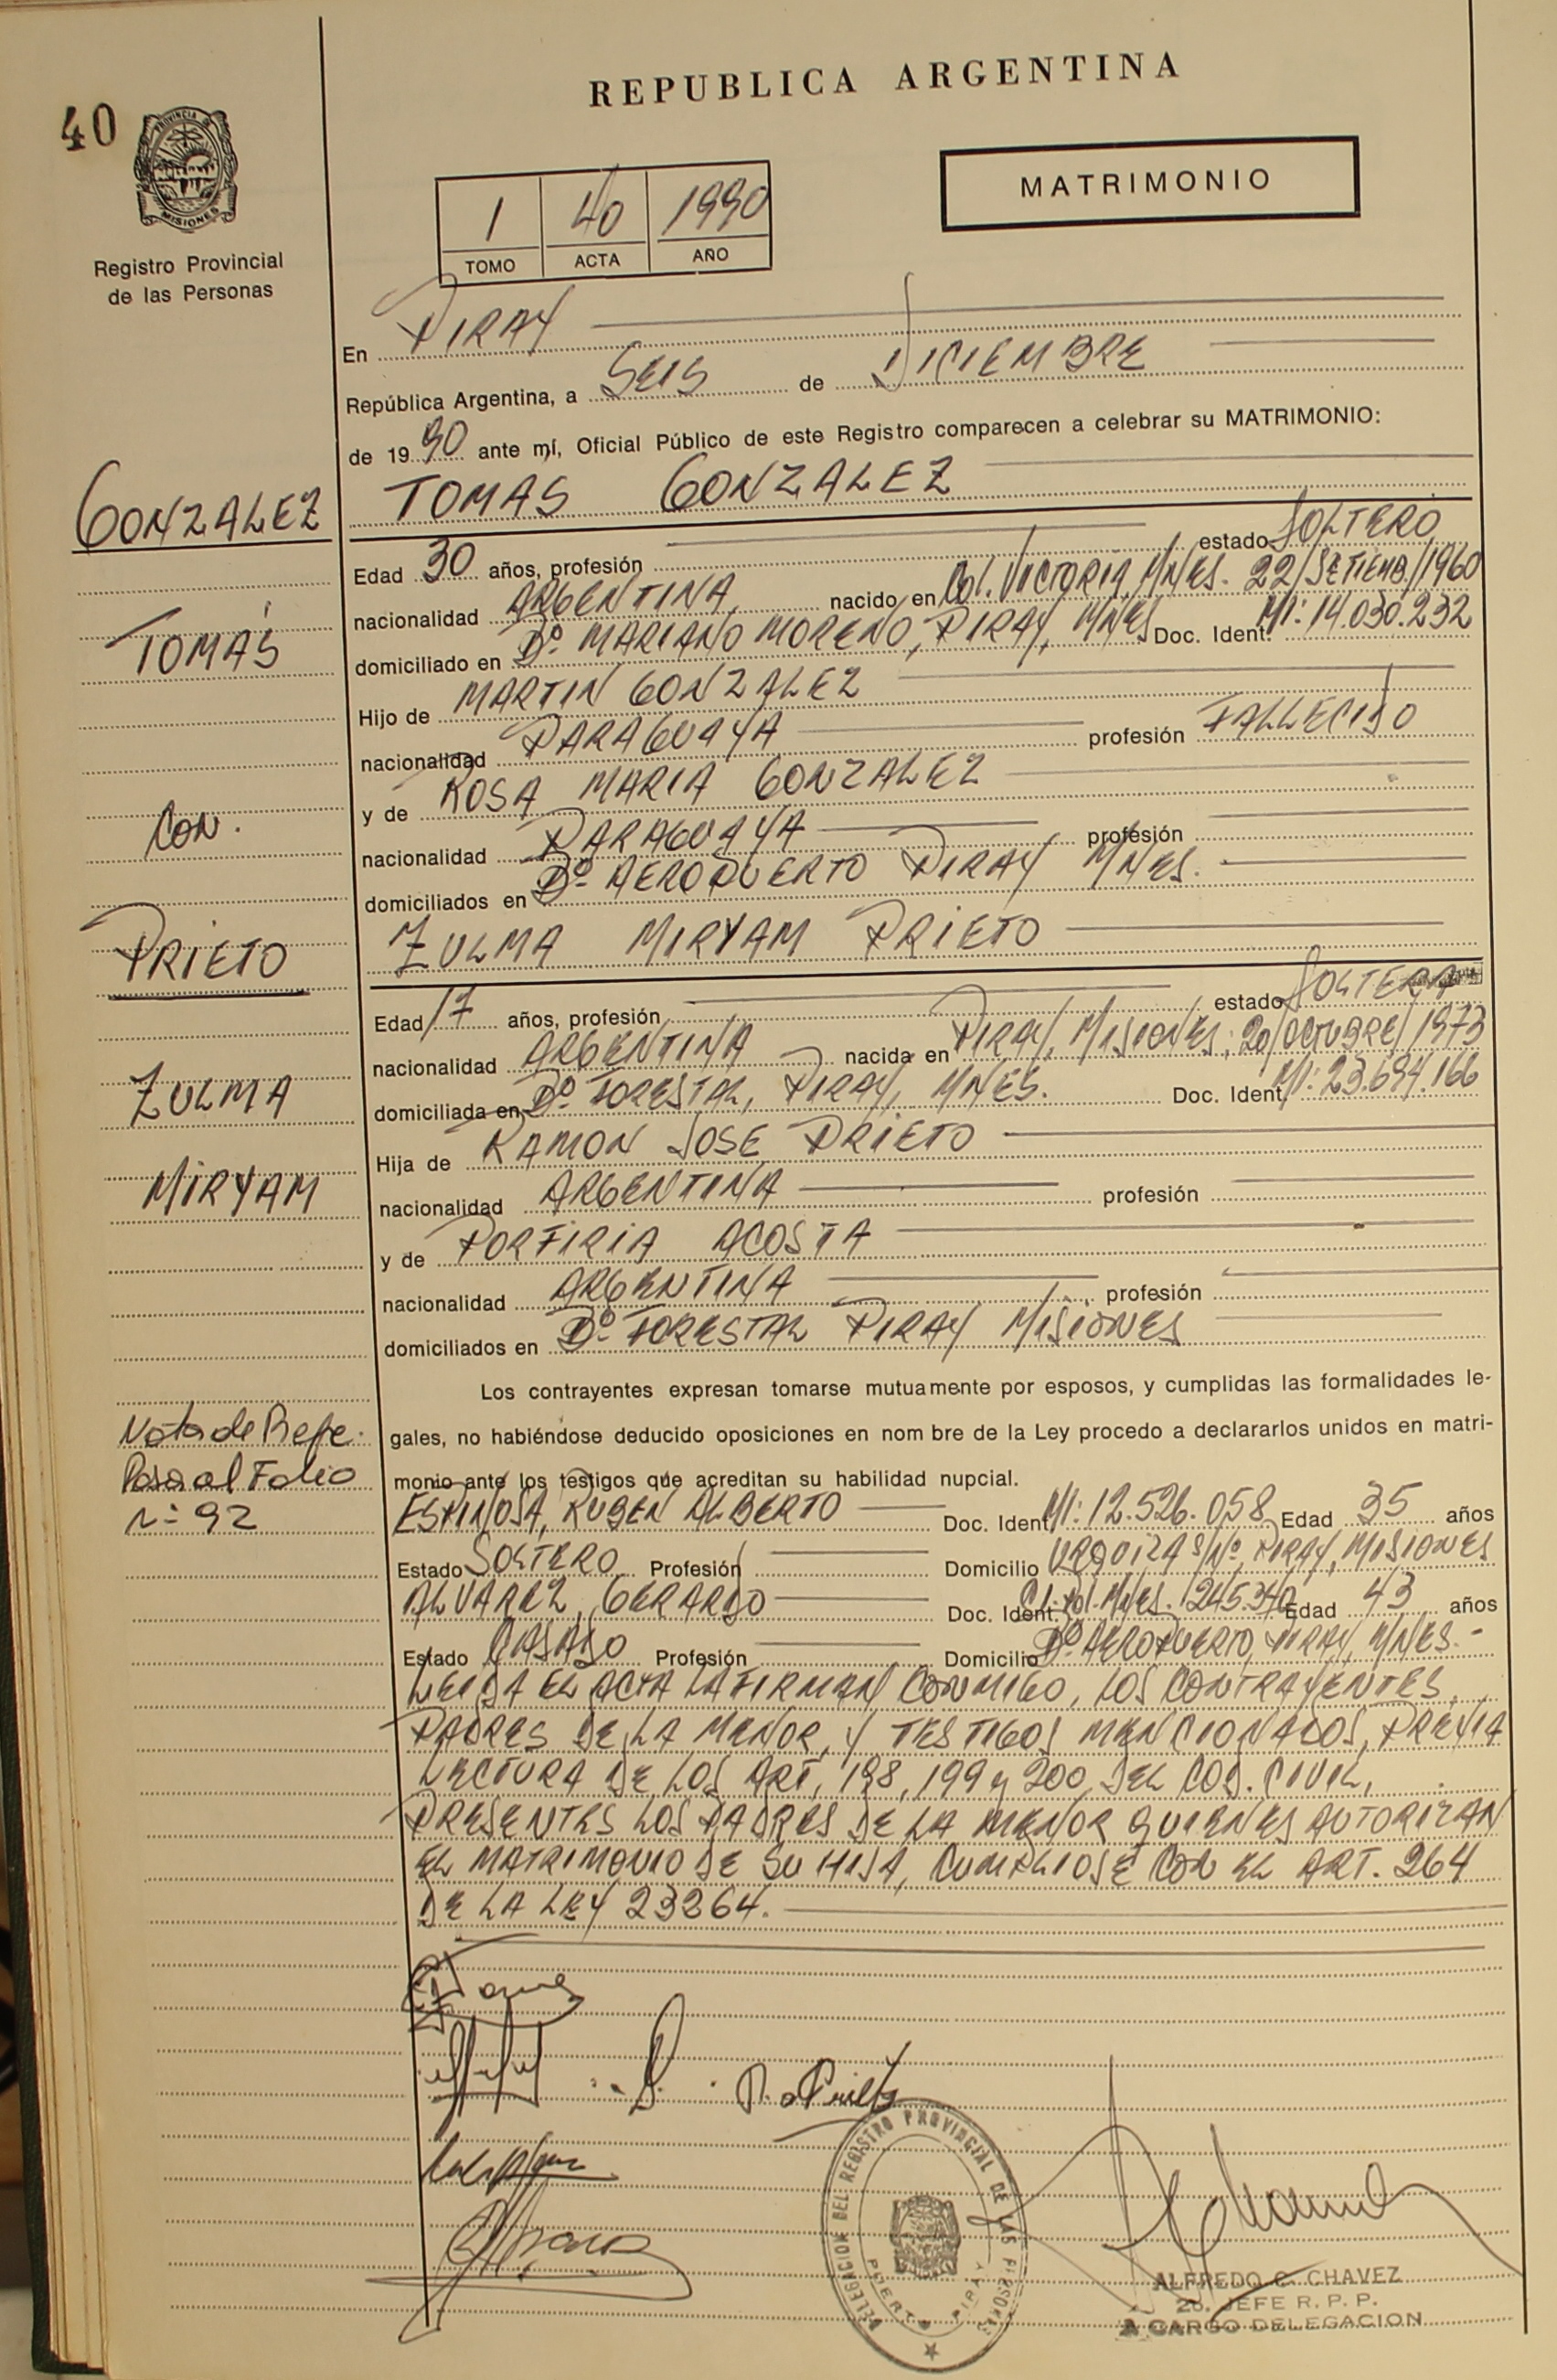 40
PROVINCIA DE
MISIONES
Registro Provincial
de las Personas
REPUBLICA ARGENTINA
MATRIMONIO
1 40 1990
TOMO ACTA AÑO
En PIRAY
República Argentina, a SEIS de DICIEMBRE
de 1990 ante mí, Oficial Público de este Registro comparecen a celebrar su MATRIMONIO:
TOMAS GONZALEZ
Edad 30 años, profesión estado SOLTERO
nacionalidad ARGENTINA nacido en Col. VICTORIA, MNES. 22/SETIEMB./1960
domiciliado en Bº MARIANO MORENO, PIRAY, MNES Doc. Ident. MI: 14.030.232
Hijo de MARTIN GONZALEZ
nacionalidad PARAGUAYA profesión FALLECIDO
y de ROSA MARIA GONZALEZ
nacionalidad PARAGUAYA profesión
domiciliados en Bº AEROPUERTO PIRAY MNES.
ZULMA MIRYAM PRIETO
Edad 17 años, profesión estado SOLTERA
nacionalidad ARGENTINA nacida en PIRAY, MISIONES; 20/OCTUBRE/1973
domiciliada en Bº FORESTAL, PIRAY, MNES. Doc. Ident. MI: 23.694.166
Hija de RAMON JOSE PRIETO
nacionalidad ARGENTINA profesión
y de PORFIRIA ACOSTA
nacionalidad ARGENTINA profesión
domiciliados en Bº FORESTAL PIRAY MISIONES
Los contrayentes expresan tomarse mutuamente por esposos, y cumplidas las formalidades le-
gales, no habiéndose deducido oposiciones en nom bre de la Ley procedo a declararlos unidos en matri-
monio ante los testigos que acreditan su habilidad nupcial.
ESPINOSA, RUBEN ALBERTO Doc. Ident. MI: 12.526.058 Edad 35 años
Estado SOLTERO Profesión Domicilio URQUIZA S/Nº, PIRAY, MISIONES
ALVAREZ, GERARDO Doc. Ident. C.I. Pol. MNES. 245.340 Edad 43 años
Estado CASADO Profesión Domicilio Bº AEROPUERTO, PIRAY, MNES.-
LEIDA EL ACTA LA FIRMAN CONMIGO, LOS CONTRAYENTES,
PADRES DE LA MENOR, Y TESTIGOS MENCIONADOS, PREVIA
LECTURA DE LOS ART, 198, 199 y 200 DEL COD. CIVIL,
PRESENTES LOS PADRES DE LA MENOR QUIENES AUTORIZAN
EL MATRIMONIO DE SU HIJA, CUMPLIOSE CON EL ART. 264
DE LA LEY 23264.
GONZALEZ
TOMÁS
CON.
PRIETO
ZULMA
MIRYAM
Nota de Refe.
Pasa al Folio
nº 92
DELEGACION DEL REGISTRO PROVINCIAL DE LAS PERSONAS
PUERTO PIRAY
ALFREDO C. CHAVEZ
2o. JEFE R. P. P.
A CARGO DELEGACION